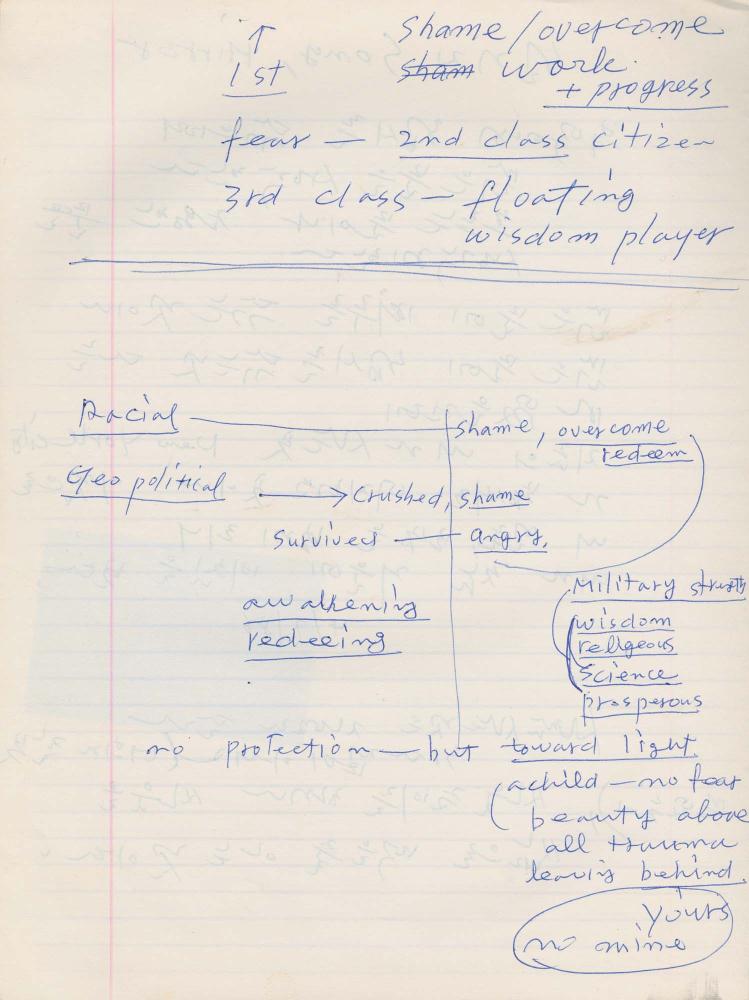 ↑ shame/overcome
1st ~~sham~~ work
+ progress
fear — 2nd class citizen
3rd class — floating
wisdom player
Racial — shame, overcome
redeem
Geo political → Crushed, shame
Survived — angry.
awalkening
redeeing
Military
wisdom
religeous
Science
prosperous
no protection — but toward light
a child — no fear
beauty above
all trauma
leavig behind.
yours
no mine